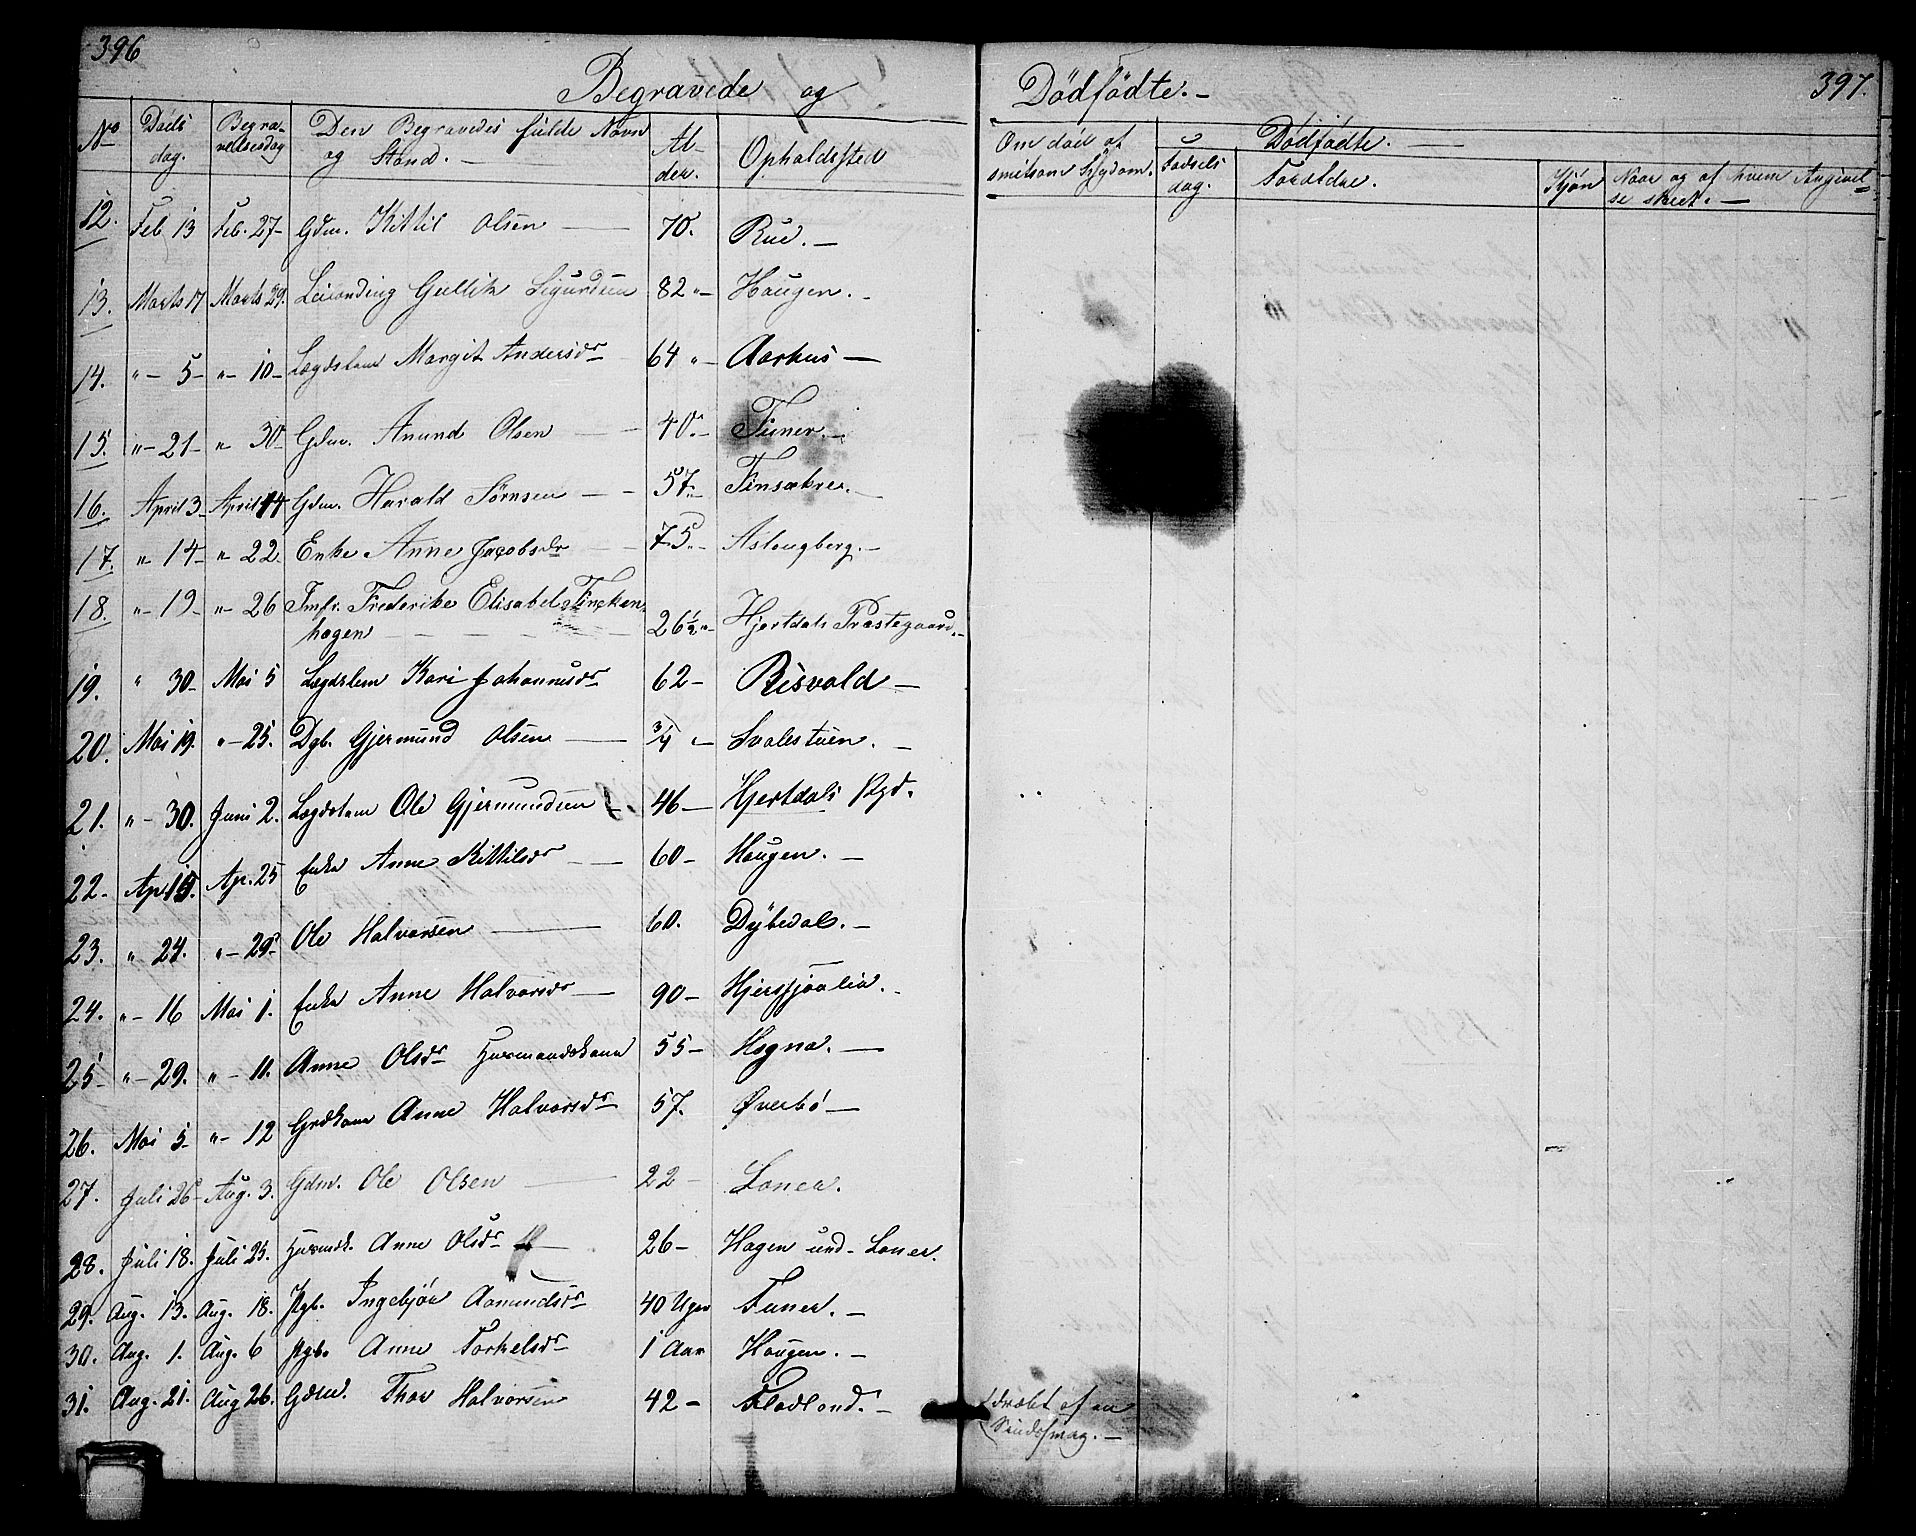 396
Begravede og
Dödfödte.-
397.
No
Döds dag.
Begravelsesdag
Den Begravedes fulde Navn og Stand.-
Alder.
Opholdssted
Om död af smitsom Sygdom.
Dödfödte.-
Födsels dag.
Foraldre.
Kjön
Naar og af hvem Angivelse skeet.-
12. Feb 13 Feb. 27- Gdm. Kittil Olsen - 70. Rue.-
13. Marts 17 Marts 29. Leilænding Gullik Sigurdsen 82 "- Haugen.-
14. "- 5- "- 10- Lægdslem Margit Andersdr 64 "- Aarhus-
15. "- 21- "- 30- Gdm. Anund Olsen - 40.- Tuner.-
16. April 3- April 14 Gdm. Harald Sörnsen - 57- Tinsækre.-
17. "- 14- "- 22. Enke Anne Jacobsdr - 75.- Aslaugberg.-
18. "- 19- "- 26 Jmfr. Frederike Elisabet Finckenhagen - 26½"- Hjertdals Præstegaard.-
19. " 30- Mai 5 Lægdslem Kari Johannesdr 62- Bisvald-
20. Mai 19. "- 25. Dgb. Gjermund Olsen - ¾ "- Svalestuen.-
21. "- 30. Juni 2. Lægdslem Ole Gjermundsen 46- Hjertdals Pgd.
22. Ap. 15. Ap. 25 Enke Anne Kittilsdr - 60- Haugen.-
23. " 24. "- 29- Ole Halvorsen - 60. Dybedal.-
24. "- 16 Mai 1. Enke Anne Halvorsdr - 90- Hjersjaalia.-
25- "- 29. "- 11. Anne Olsdr Huusmandskone 55- Hogna.-
26. Mai 5- "- 12 Grdkone Anne Halvorsdr 57. Øverbö-
27. Juli 26- Aug. 3. Gdm. Ole Olsen - 22- Loner.
28. Juli 18. Juli 25. Husmdk. Anne Olsdr - 26- Hagen und- Loner.
29. Aug. 13. Aug. 18. Pgb. Ingebjör Aamundsdr 40 Uger Tuner.-
30. Aug. 1. Aug. 6 Pgb. Anne Torkelsdr 1 Aar Haugen.-
31. Aug. 21. Aug 26. Gdm. Thor Halvorsen 42- Fladland.-
(dræbt af en